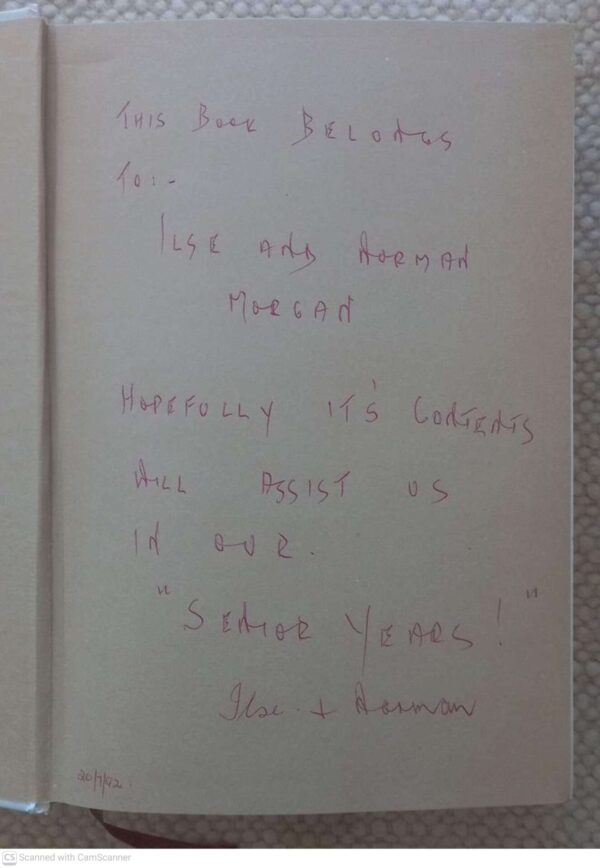 THIS BOOK BELONGS
TO:-
ILSE AND NORMAN
MORGAN
HOPEFULLY IT'S CONTENTS
WILL ASSIST US
IN OUR.
"SENIOR YEARS!"
Ilse. + Norman
20/7/92
CS Scanned with CamScanner